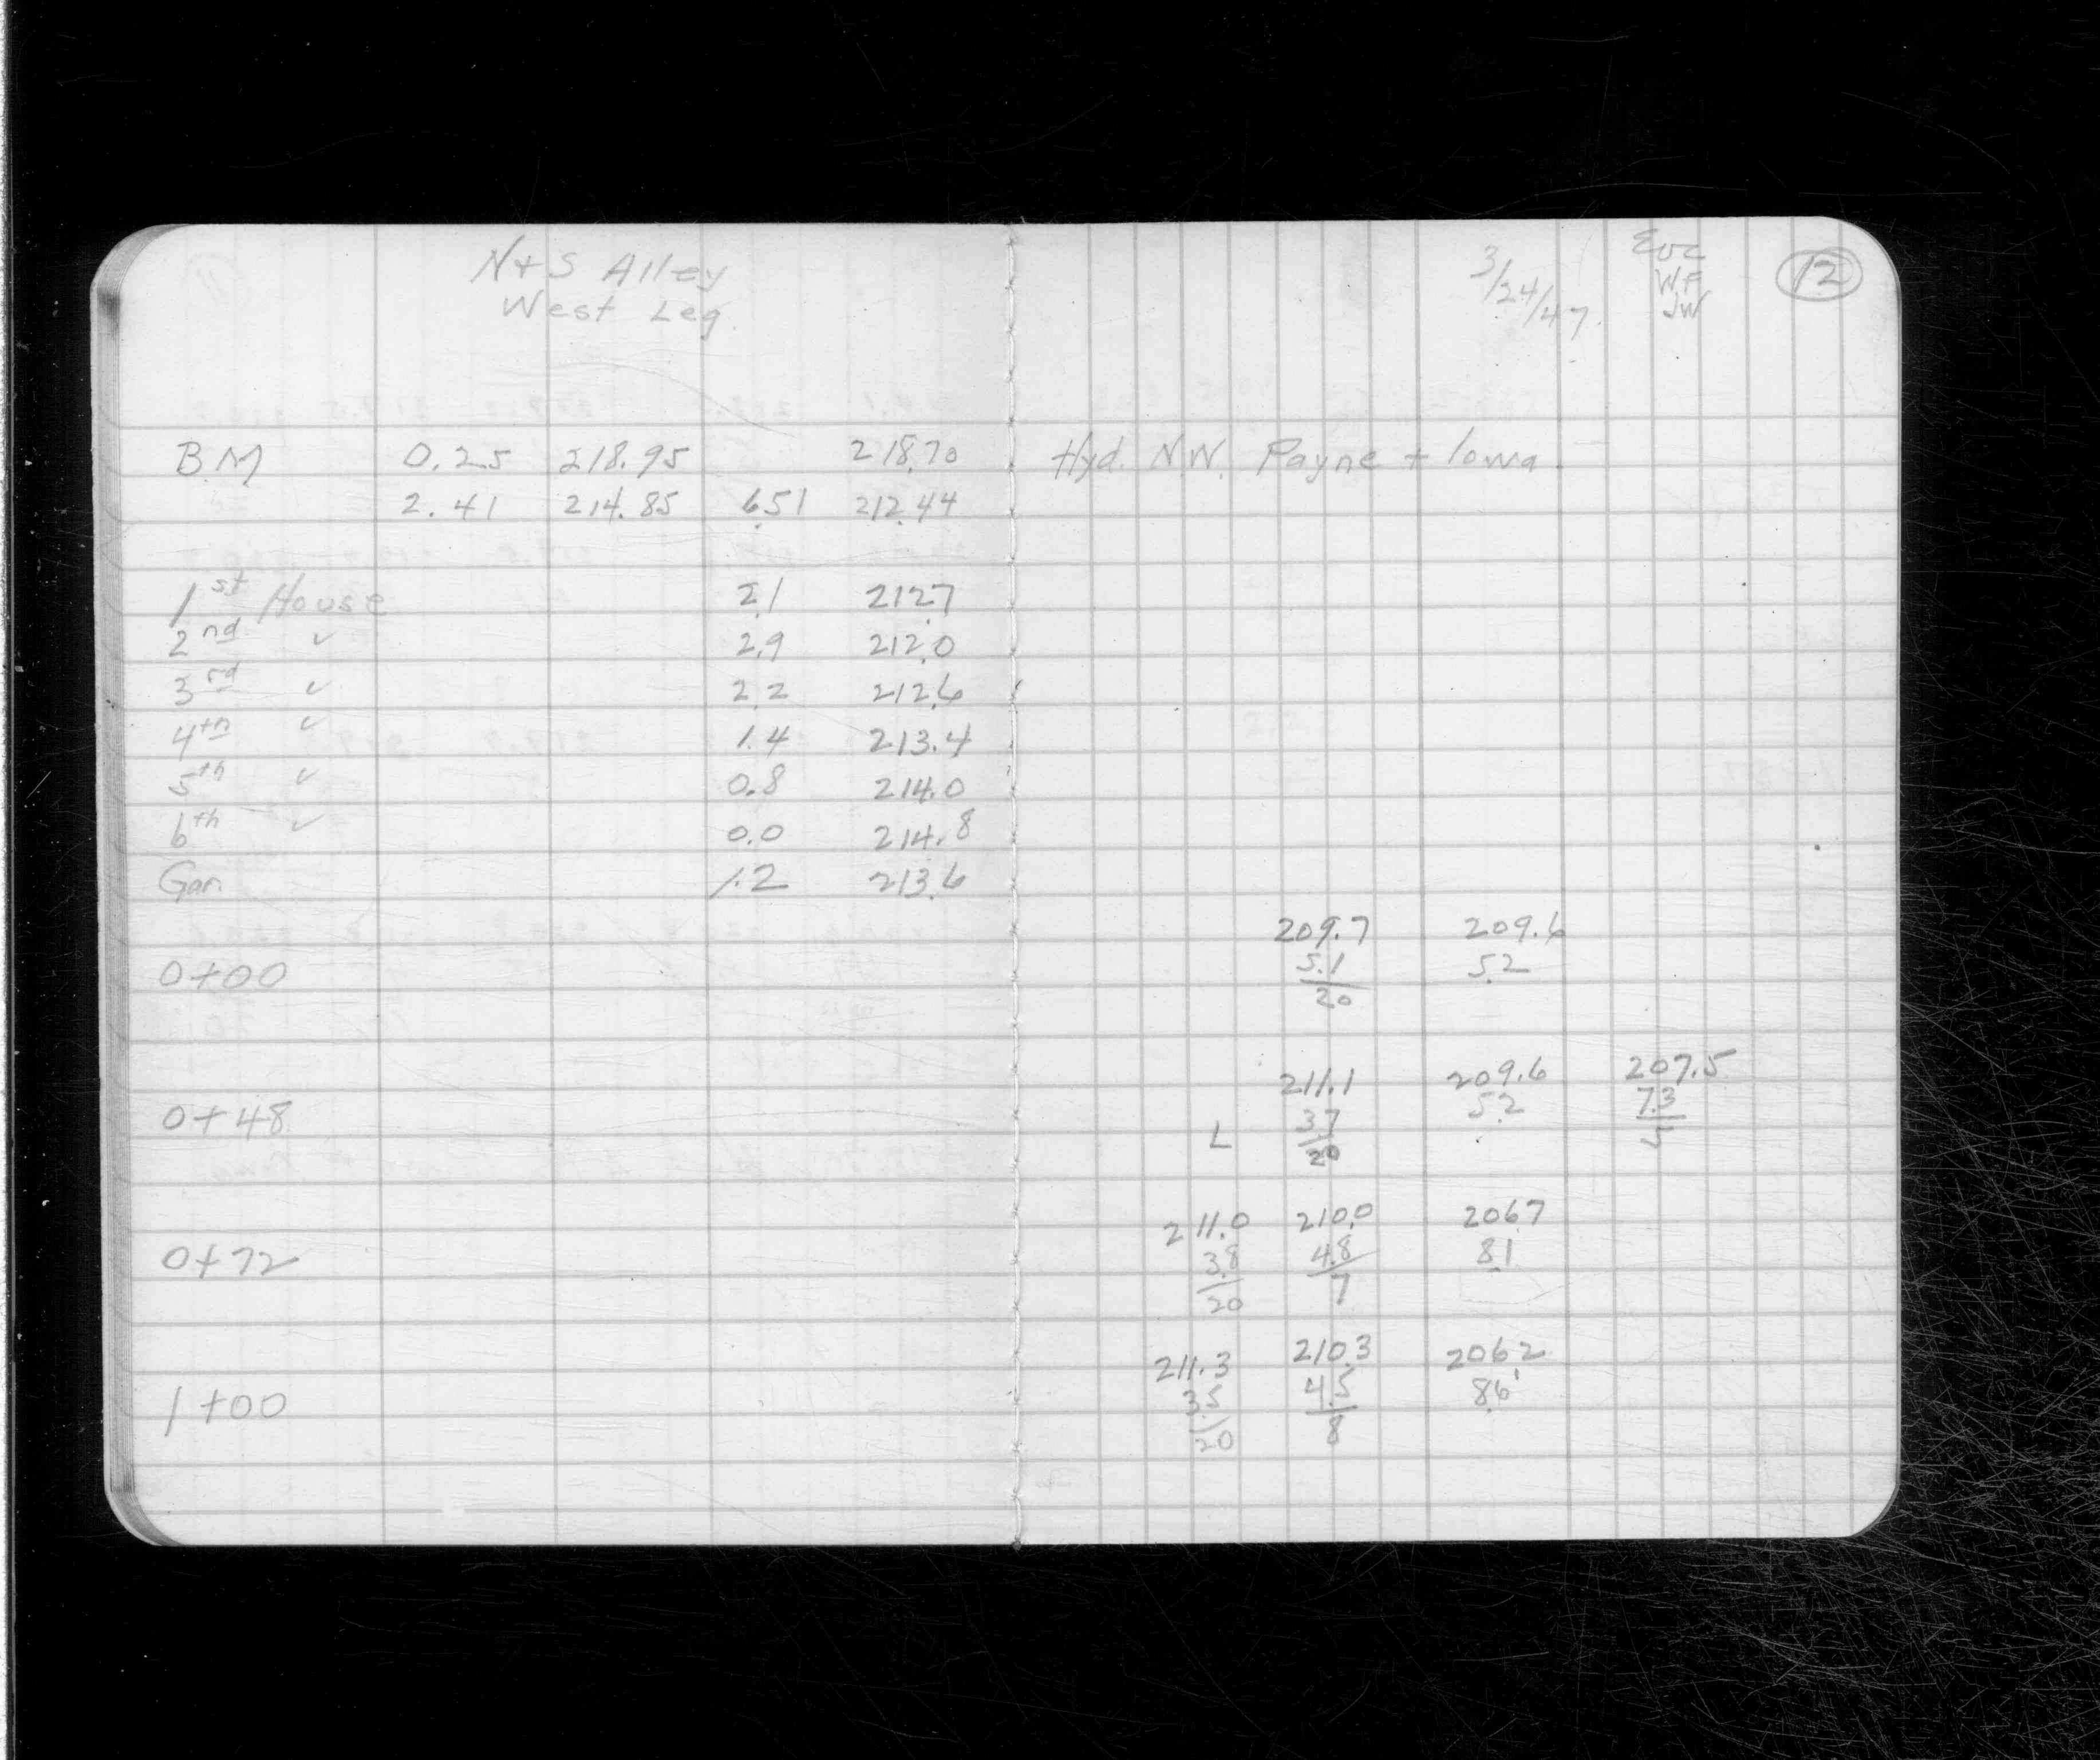 N+S Alley
West Leg
3/24/47.
WF
JW
12
B.M 0.25 218.95 218.70 Hyd. N.W. Payne + Iowa.
2.41 214.85 6.51 212.44
1st House 2.1 212.7
2nd ✓ 2.9 212.0
3rd ✓ 2.2 212.6
4th ✓ 1.4 213.4
5th ✓ 0.8 214.0
6th ✓ 0.0 214.8
Gar. 1.2 213.6
209.7 209.6
0+00 5.1 5.2
20
211.1 209.6 207.5
0+48 3.7 5.2 7.3
L 20 5
211.0 210.0 206.7
0+72 3.8 4.8 8.1
20 7
211.3 210.3 206.2
1+00 3.5 4.5 8.6
20 8